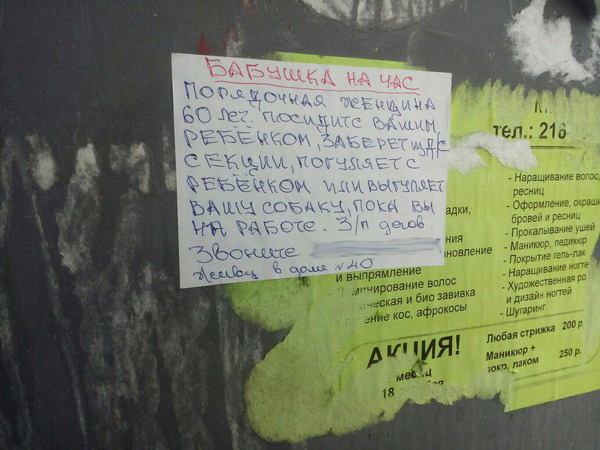 БАБУШКА НА ЧАС
ПОРЯДОЧНАЯ ЖЕНЩИНА
60 лет. ПОСИДИТ С ВАШИМ
РЕБЁНКОМ, ЗАБЕРЕТ ш, д/с
СЕКЦИИ, ПОГУЛЯЕТ С
РЕБЁНКОМ ИЛИ ВЫГУЛЯЕТ
ВАШУ СОБАКУ, ПОКА ВЫ
НА РАБОТЕ. З/п догов.
ЗВОНИТЕ
Живу в доме №40
тел.: 216
- Наращивание волос,
ресниц
- Оформление, окраши
бровей и ресниц
- Прокалывание ушей
- Маникюр, педикюр
- Покрытие гель-лак
- Наращивание ногте
- Художественная ро
и дизайн ногтей
- Шугаринг
адки,
ния
новление
и выпрямление
минирование волос
ическая и био завивка
ение кос, афрокосы
АКЦИЯ!
месяц
18
Любая стрижка 200 р.
Маникюр +
покр. лаком 250 р.